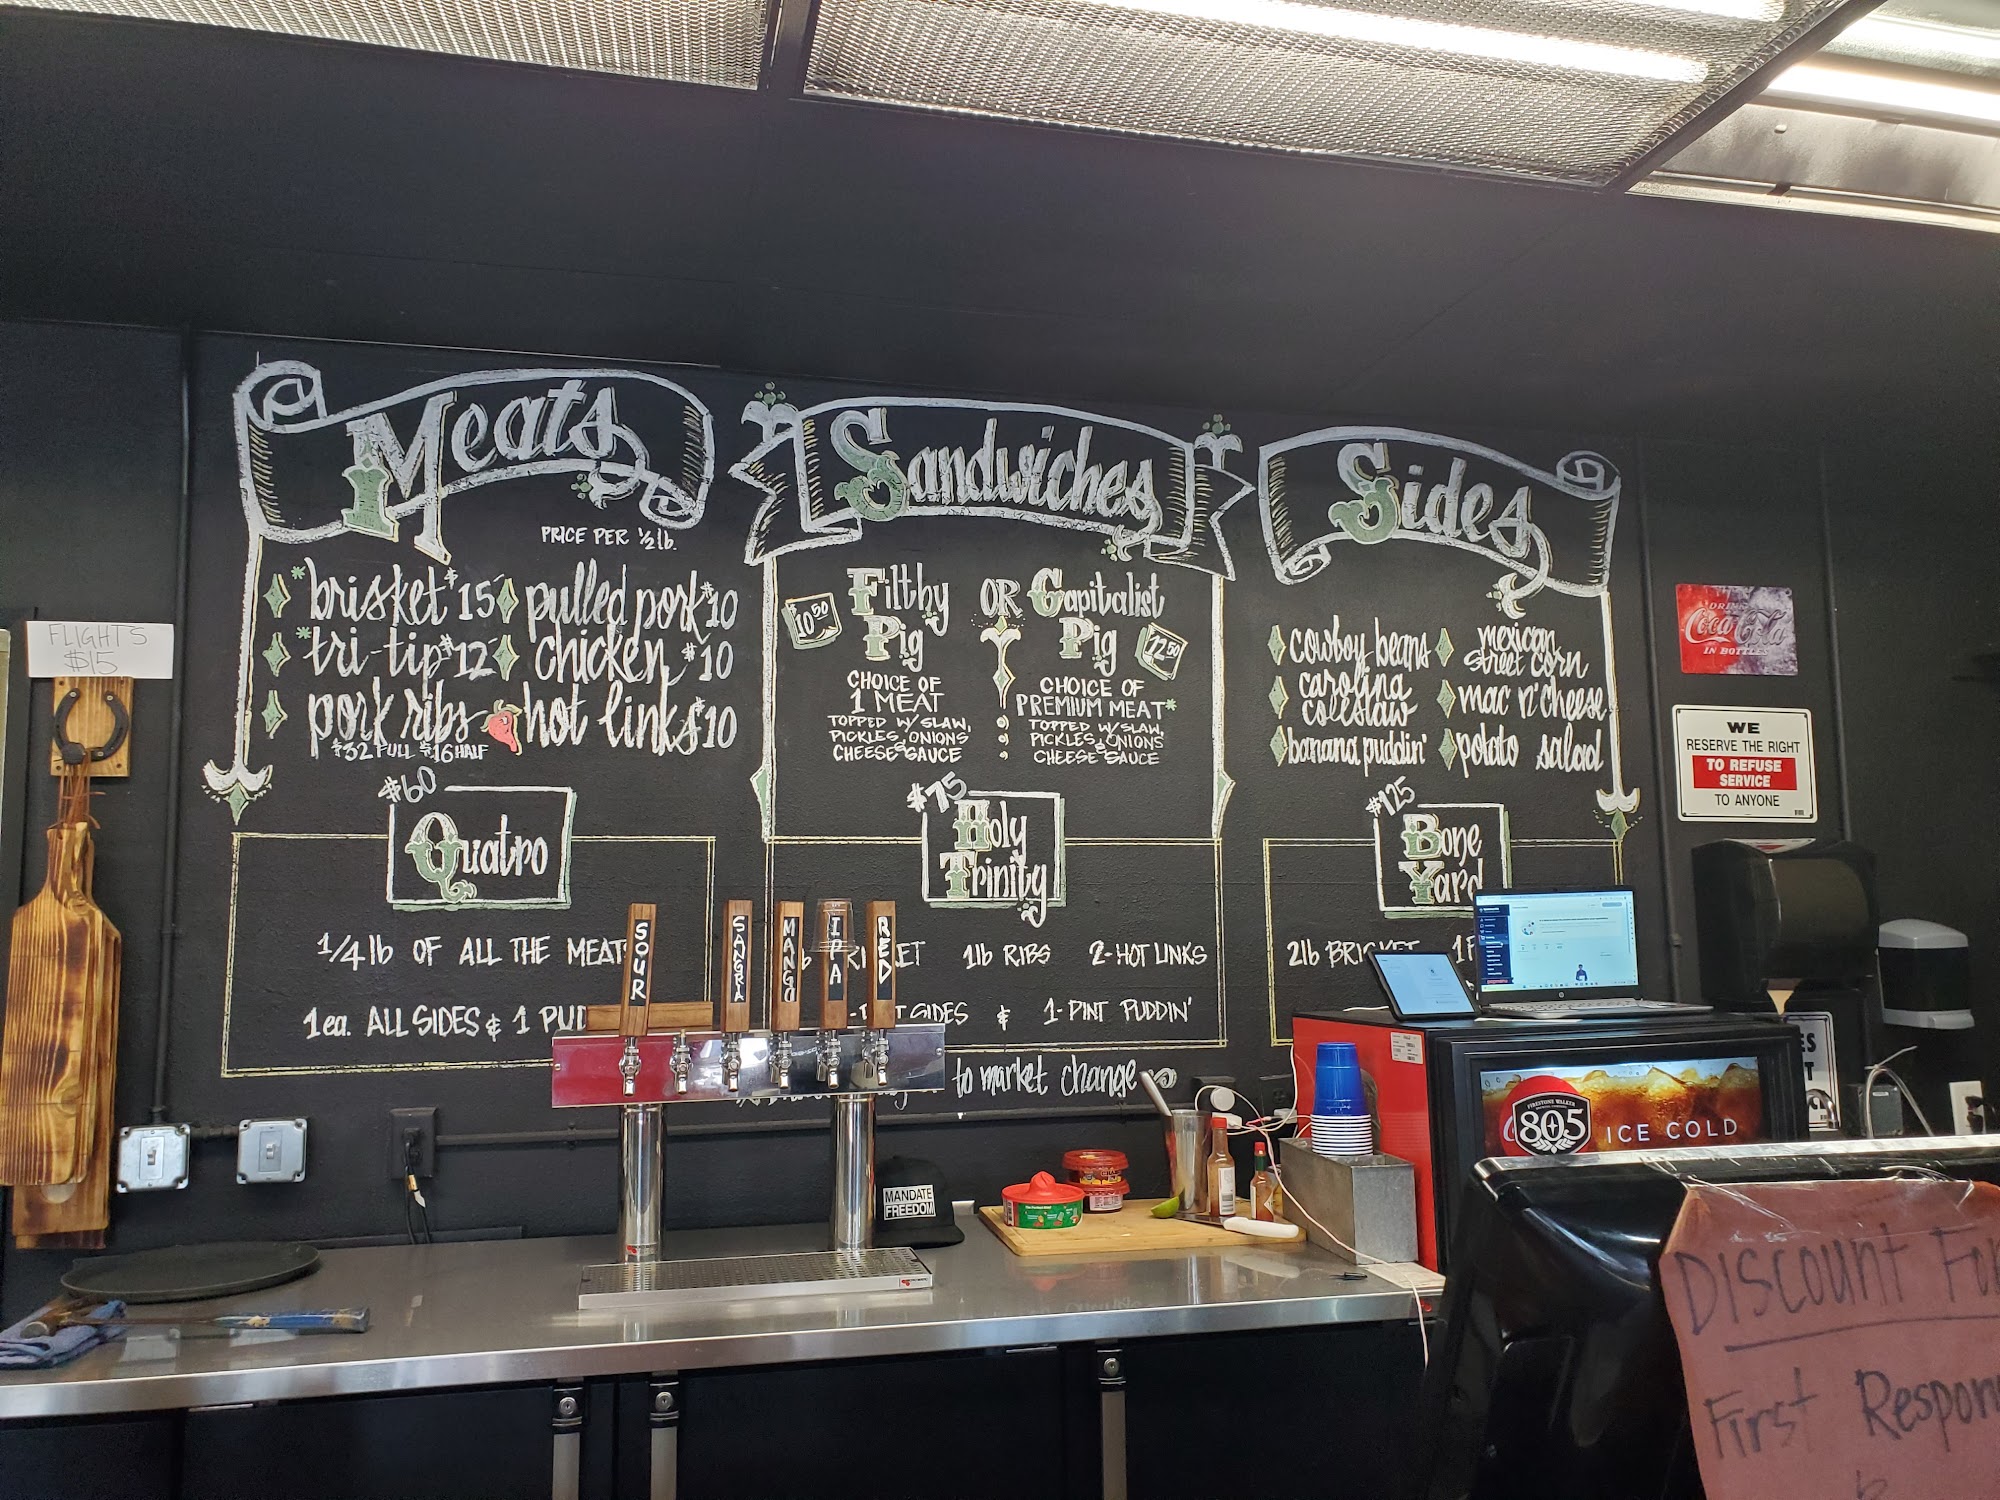 Meats
PRICE PER 1/2 lb.
*brisket $15
pulled pork $10
*tri-tip $12
chicken $10
pork ribs
$32 FULL $16 HALF
hot links $10
$60
Quatro
1/4 lb OF ALL THE MEATS
1ea. ALL SIDES & 1 PUD
Sandwiches
$10.50
Filthy
Pig
CHOICE OF
1 MEAT
TOPPED W/ SLAW,
PICKLES, ONIONS
& CHEESE SAUCE
OR
Capitalist
Pig
CHOICE OF
PREMIUM MEAT*
TOPPED W/ SLAW,
PICKLES, ONIONS
& CHEESE SAUCE
$75
Holy
Trinity
1lb RIBS 2-HOT LINKS
SIDES & 1-PINT PUDDIN'
to market change
Sides
cowboy beans
carolina
coleslaw
banana puddin'
mexican
street corn
mac n' cheese
potato salad
$125
Bone
Yard
2lb BRISKET
FLIGHTS
$15
SOUR
SANGRIA
MANGO
IPA
RED
DRINK
Coca-Cola
IN BOTTLES
WE
RESERVE THE RIGHT
TO REFUSE
SERVICE
TO ANYONE
MANDATE
FREEDOM
FIRESTONE WALKER
805
ICE COLD
DISCOUNT FOR
First Respon